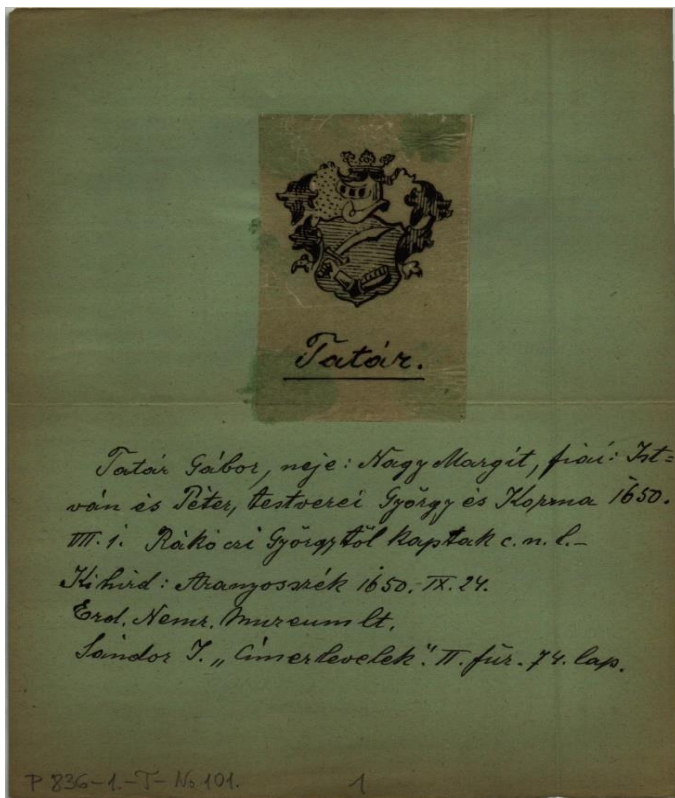 Tatár.
Tatár Gábor, neje: Nagy Margit, fiai: Ist=
ván és Péter, testverei György és Kozma 1650.
VIII. 1. Rákóczi Györgytől kaptak c. n. l.-
Kihird: Aranyosszék 1650. IX. 24.
Erd. Nemz. Muzeum lt.
Sándor I. „Címerlevelek". II. füz. 74. lap.
P 836-1.-T-No 101. 1